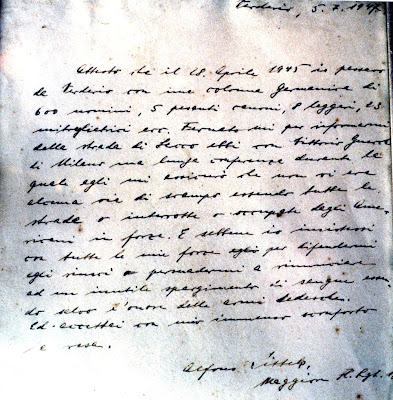 Verderio, 5.7.1947.
Attesto che il 28 Aprile 1945 io passavo
da Verderio con una colonna Germanica di
600 uomini, 5 pesanti canoni, 8 leggeri, 23
mitragliatrici ecc. Fermato mi per informazioni
della strada di Lecco ebbi con Vittorio
di Milano una lunga conferenza durante la
quale egli mi assicurò che non vi era
alcuna via di scampo essendo tutte le
strade o interrotte o occupate dagli Ame-
ricani in forze. E sebbene io insistessi
con tutte le mie forze per difendermi
egli riuscì a persuadermi a rinunciare
ad un inutile spargimento di sangue essen-
do salvo l'onore delle armi tedesche.
Ed accettai con mio immenso sconforto
la resa.
Alfons
Maggiore